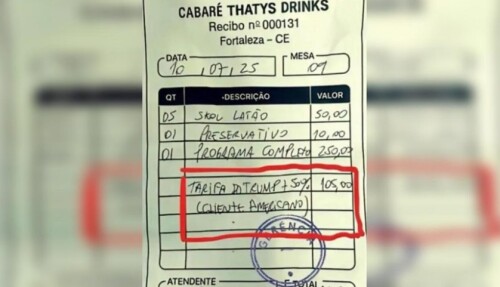 CABARÉ THATYS DRINKS
Recibo nº 000131
Fortaleza - CE
DATA MESA
10, 07, 25 09
QT -DESCRIÇÃO VALOR
05 SKOL LATÃO 50,00
01 PRESERVATIVO 10,00
01 PROGRAMA COMPLETO 250,00
TARIFA D.TRUMP + 50% 105,00
(CLIENTE AMERICANO)
GERENCIA
ATENDENTE TOTAL